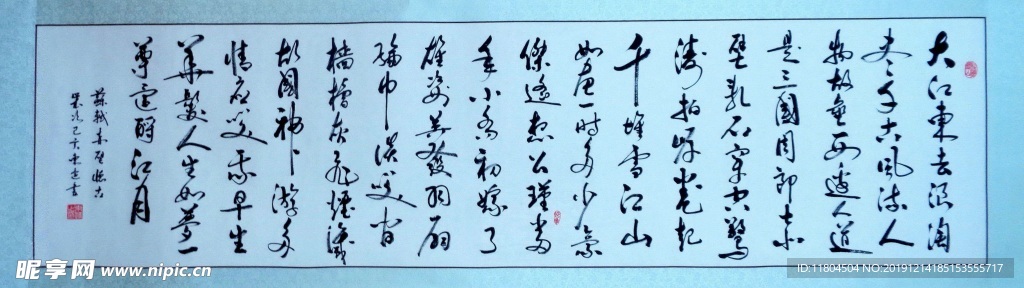 大江東去浪淘
尽千古風流人
物故垒西边人道
是三國周郎赤
壁乱石穿空驚
涛拍岸卷起
千堆雪江山
如画一时多少豪
傑遥想公瑾当
年小喬初嫁了
雄姿英發羽扇
綸巾談笑间
樯橹灰飛煙滅
故國神游多
情应笑我早生
華髮人生如夢一
尊還酹江月
蘇軾赤壁懷古
歲次己亥書
昵享网 www.nipic.cn
ID:11804504 NO:20191214185153555717